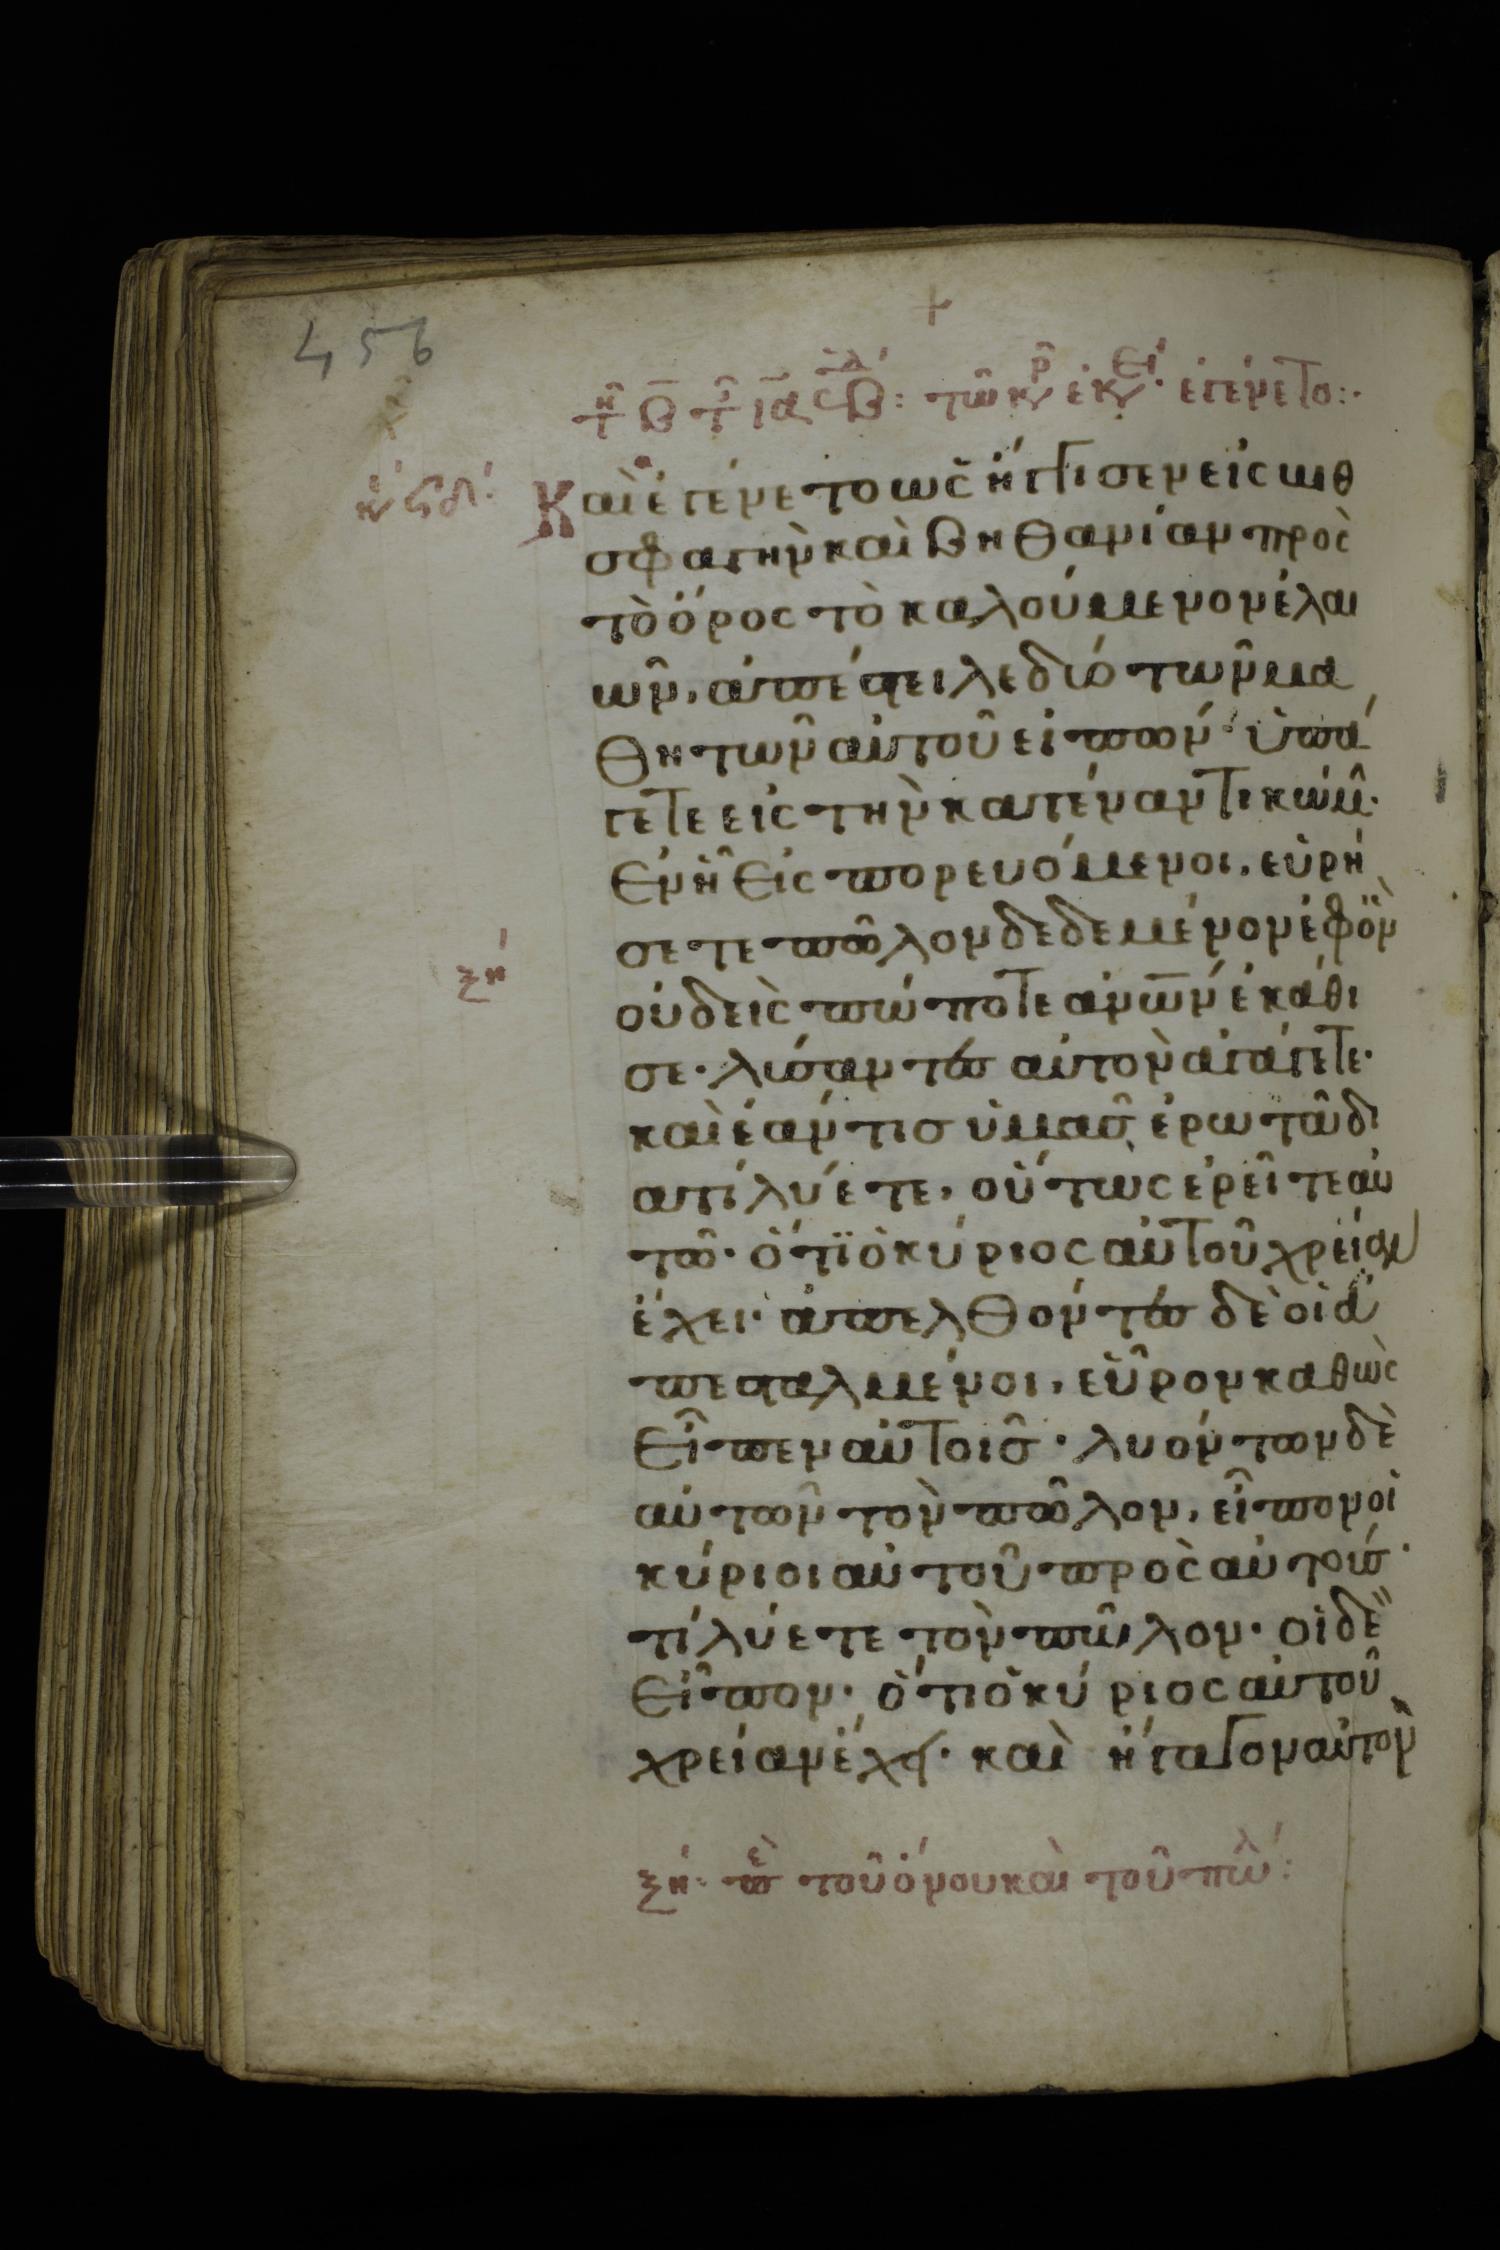 456
+
τῆ β τ ια β: τῶ κρ ἐκ ἐγένετο:
Καὶ ἐγένετο ὡς ἤγγισεν εἰς ωιθ
σφαγὴν καὶ βηθανίαν πρὸς
τὸ ὄρος τὸ καλούμενον ἐλαι
ῶν, ἀπέστειλε δύο τῶν μα
θητῶν αὐτοῦ εἰπών· ὑπά
γετε εἰς τὴν κατέναντι κώμ·
Ἐν ἧ εἰσπορευόμενοι, εὑρή
σετε πῶλον δεδεμένον ἐφ ὃν
ξη
οὐδεὶς πώποτε ἀνων ἐκάθι
σε· λύσαντες αὐτὸν ἀγάγετε·
καὶ ἐάν τις ὑμᾶς ἐρωτᾶ δι
ατί λύετε, οὕτως ἐρεῖτε αὐ
τῶ· ὅτι ὁ κύριος αὐτοῦ χρείαν
ἔχει· ἀπελθόντες δὲ οἱ ἀ
πεσταλμένοι, εὗρον καθὼς
Εἶπεν αὐτοῖς· λυόντων δὲ
αὐτῶν τὸν πῶλον, εἶπον οἱ
κύριοι αὐτοῦ πρὸς αὐτούς·
τί λύετε τὸν πῶλον· οἱ δὲ
Εἶπον· ὅτι ὁ κύριος αὐτοῦ
χρείαν ἔχει· καὶ ἤγαγον αὐτὸν
ξη· πε τοῦ ὄνου καὶ τοῦ πωλ: